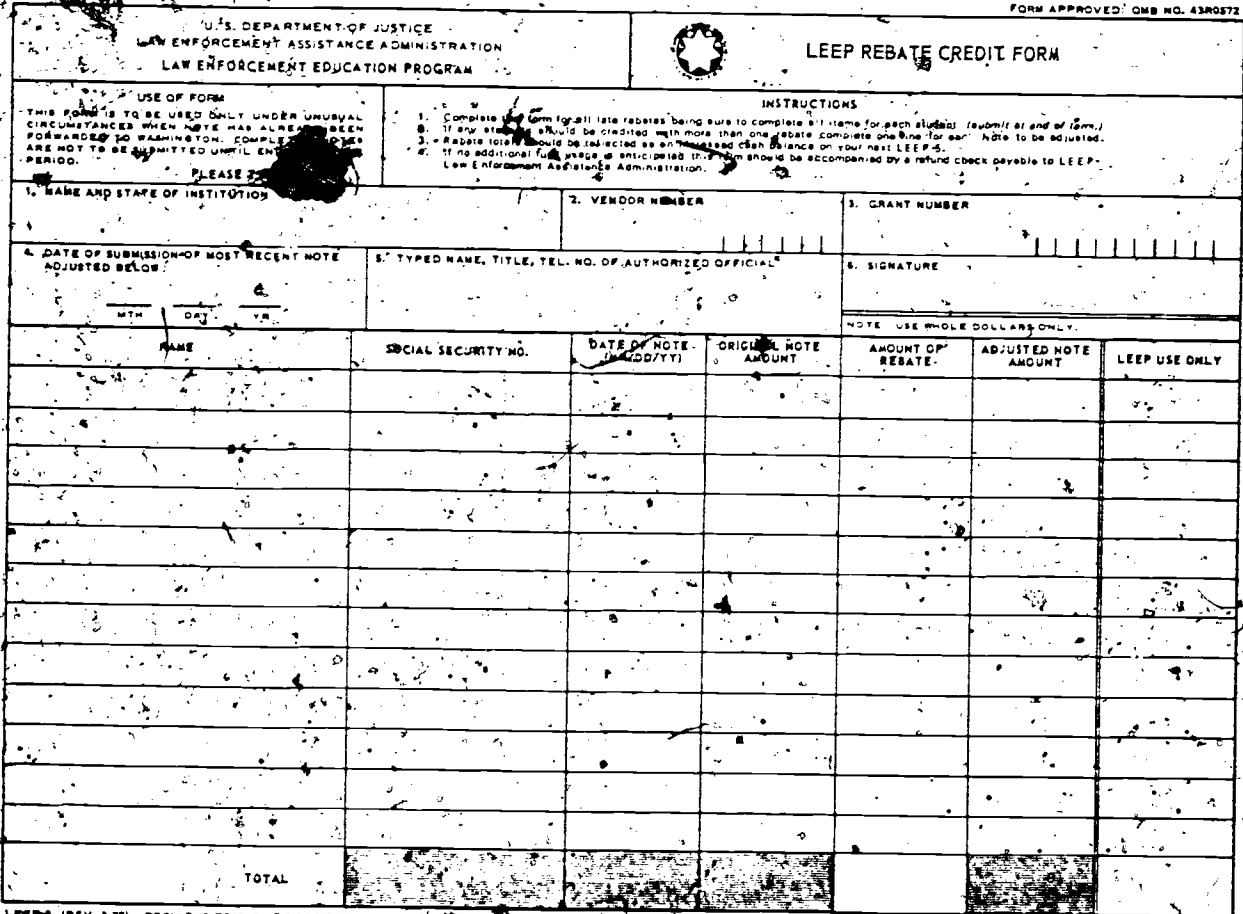 FORM APPROVED: OMB NO. 43R0572
U.S. DEPARTMENT OF JUSTICE
LAW ENFORCEMENT ASSISTANCE ADMINISTRATION
LAW ENFORCEMENT EDUCATION PROGRAM
LEEP REBATE CREDIT FORM
USE OF FORM
THIS FORM IS TO BE USED ONLY UNDER UNUSUAL
CIRCUMSTANCES WHEN NOTE HAS ALREADY BEEN
FORWARDED TO WASHINGTON. COMPLETED NOTES
ARE NOT TO BE SUBMITTED UNTIL
PERIOD.
PLEASE
INSTRUCTIONS
1. Complete form for all late rebates being sure to complete all items for each student (submit at end of term.)
If any should be credited with more than one rebate complete one line for each Note to be adjusted.
3. Rebate totals should be reflected as an increased cash balance on your next LEEP-5.
If no additional fund usage is anticipated this form should be accompanied by a refund check payable to LEEP-
Law Enforcement Assistance Administration.
1. NAME AND STATE OF INSTITUTION
2. VENDOR NUMBER
3. GRANT NUMBER
4. DATE OF SUBMISSION OF MOST RECENT NOTE
ADJUSTED BELOW:
MTH DAY YR
5. TYPED NAME, TITLE, TEL. NO. OF AUTHORIZED OFFICIAL
6. SIGNATURE
NOTE: USE WHOLE DOLLARS ONLY.
NAME
SOCIAL SECURITY NO.
DATE OF NOTE
(MM/DD/YY)
ORIGINAL NOTE
AMOUNT
AMOUNT OF
REBATE
ADJUSTED NOTE
AMOUNT
LEEP USE ONLY
TOTAL